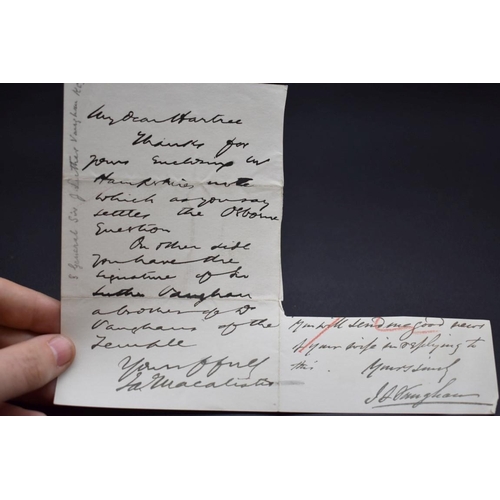 My Dear Hartree
Thanks for
yours enclosing
Hampshires note
which as you say
settles the Osborne
Question
On other side
you have the
signature of Sir
Luther Vaughan
a brother of Dr
Vaughan of the
Temple
Yours ffully
MacAlister
General Sir J Luther Vaughan
You will send me good news
of your wife in replying to
this. Yours sincly
J L Vaughan